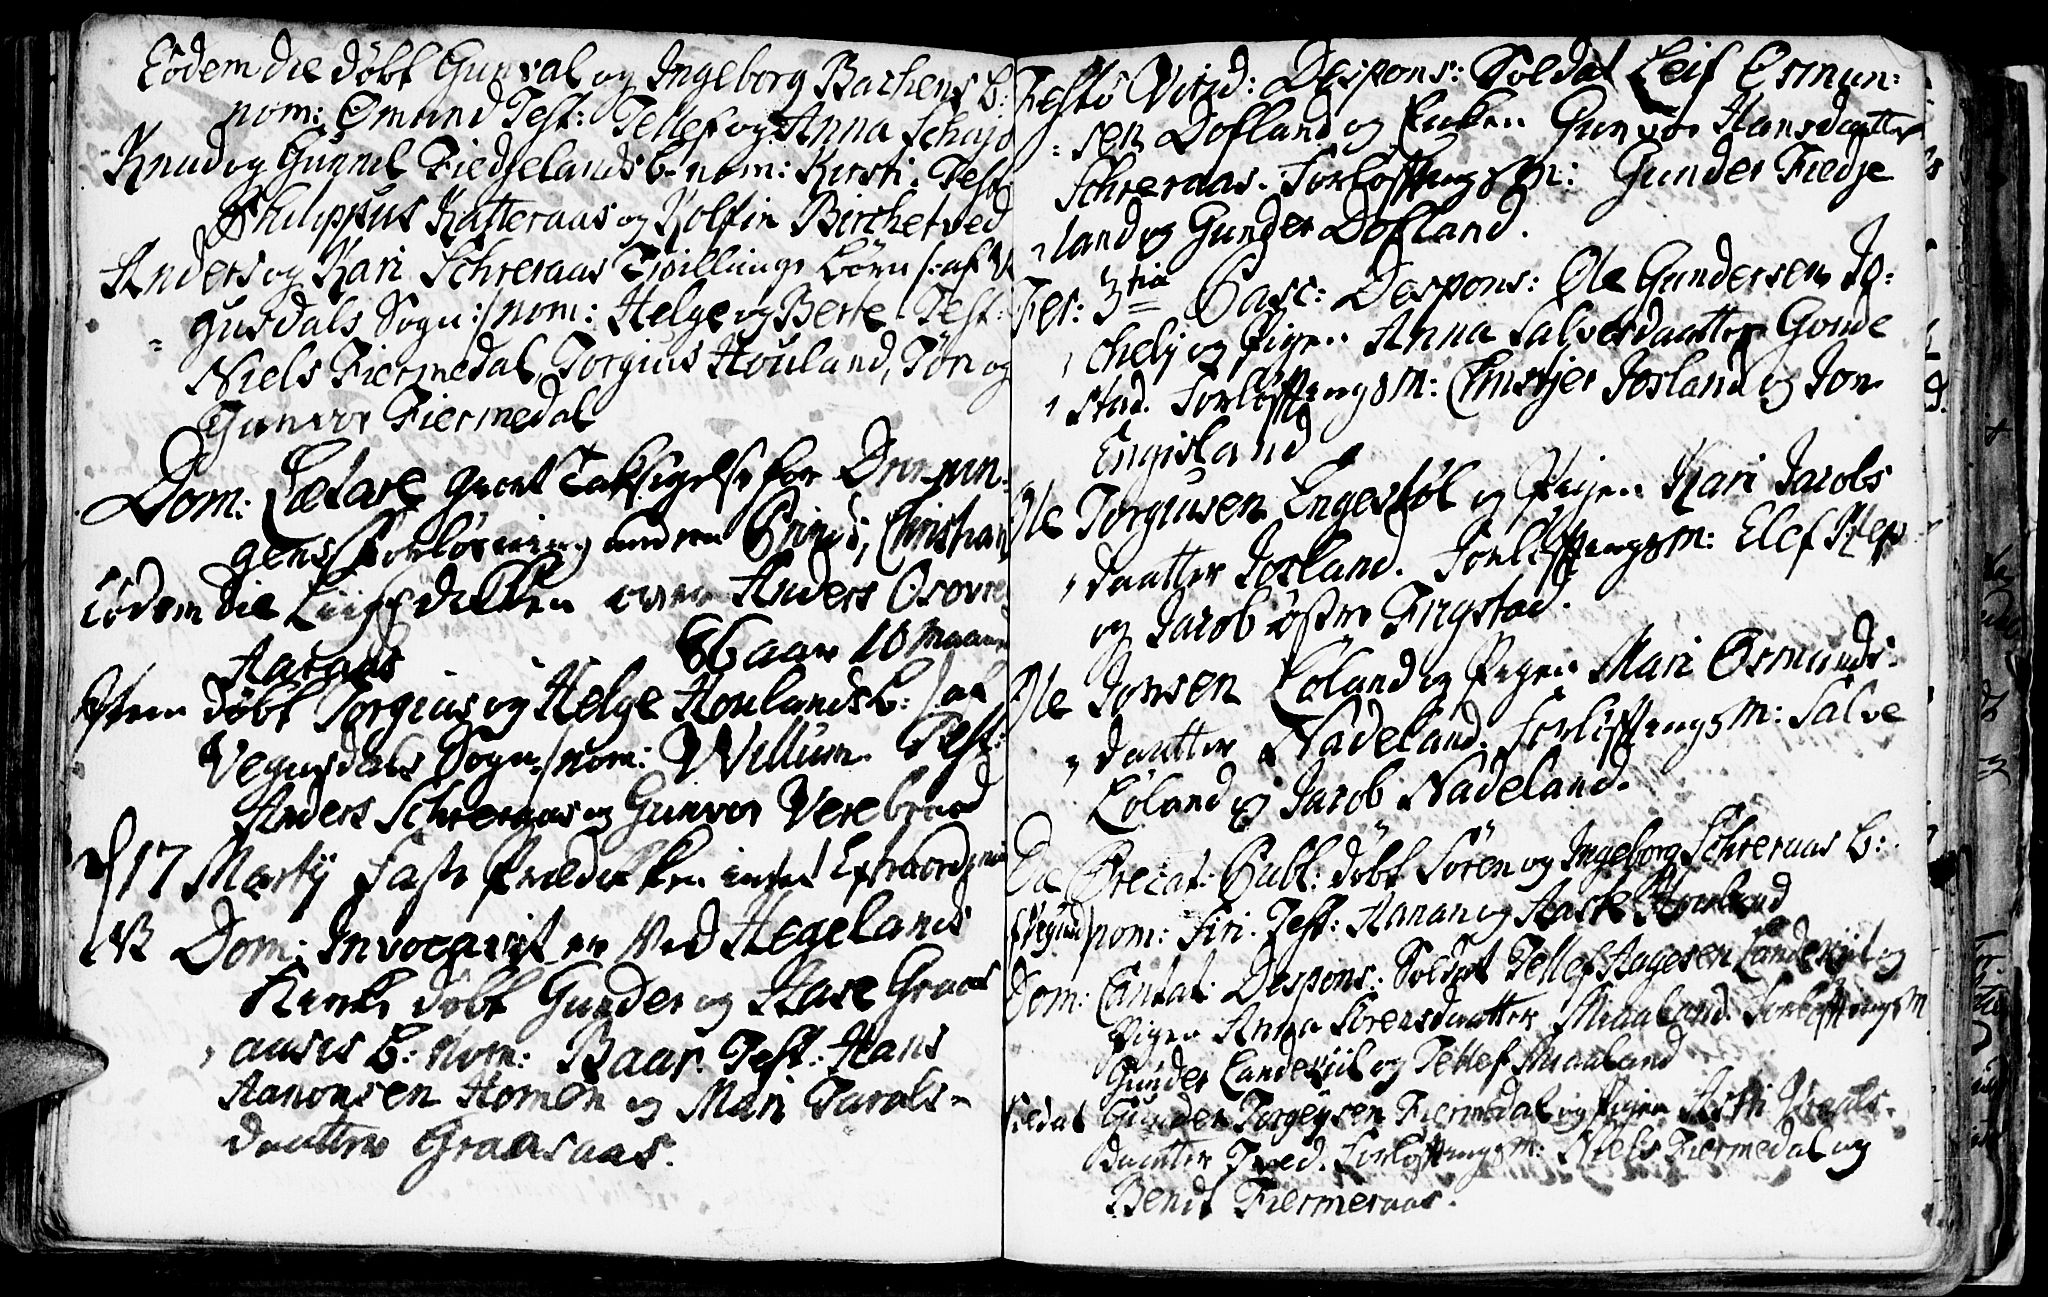 Eodem die döbt Gunval og Ingeborg Bachens b:
nom: Omund Test: Tellef og Anna Schajo
Knud og Gunnil Fiedjelands b. nom: Kirsti. Test:
Philippus Katteraas og Kolfin Birchetved
Anders og Kari Schreraas Tvillings börn /: af Ve
gusdals Sogn :/ nom: Helge og Berte Test:
Niels Fiermedal, Torgius Houland, Jon og
Gunvor Fiermedal
Dom: Lætare giort Taksigelse for Dronnin:
gens forlösning med en Prinds, Christian
Eodem die Liigprædikken over Anders Osovre
Aaraas 66 aar 10 maan
Item döbt Torgius og Helge Houlands b: /: af
Vegusdals Sogn :/ nom: Willum. Test:
Anders Schreraas og Gunvor Verebroed
d 17 Martij Faste Prædikken intet Extraordinair
NB Dom: Invocavit er ved Hegelands
Kirke döbt Gunder og Aase Graas
aasis b: Nom: Baar. Test: Hans
Aanonsen Homen og Mari Tarals-
daatter Graasaas.
Festo Virid: Despons: Soldat Leif Osmun:
sen Dofland og Enken Gunvor Hansdaatter
Schreraas. Forlöftningsm: Gunder Fiedje
land og Gunder Dofland.
Fer: 3tia Pasc: Despons: Ole Gundersen Jo:
chelj og Pigen Anna Salvesdaatter Gonde
stad. Forlöftningsm: Christjer Josland og Jon
Engisland
Ole Torgiusen Engestöl og Pigen Kari Jacobs
daatter Josland. Forlöftningsm: Elef
og Jacob östre Frigstad.
Ole Jonsen Löland og Pigen Mari Osmunds
daatter Nadeland. Forlöftningsm: Salve
Löland og Jacob Nadeland.
Die Precat: Publ: döbt Sören og Ingeborg Schreraas b:
nom: Siri. Test: Aanan og Aaste Houland
Dom: Cantat: Despons: Soldat Tellef Aagesen Landesiil og
Pigen Anna Sörensdaatter Miaaland. Forlöftningsm
Gunder Landesiil og Tellef Miaaland
Soldat Gunder Torgeysen Fiermedal og Pigen Asti
daatter Tved. Forlöftningsm: Niels Fiermedal og
Bendt Fiermeraas.